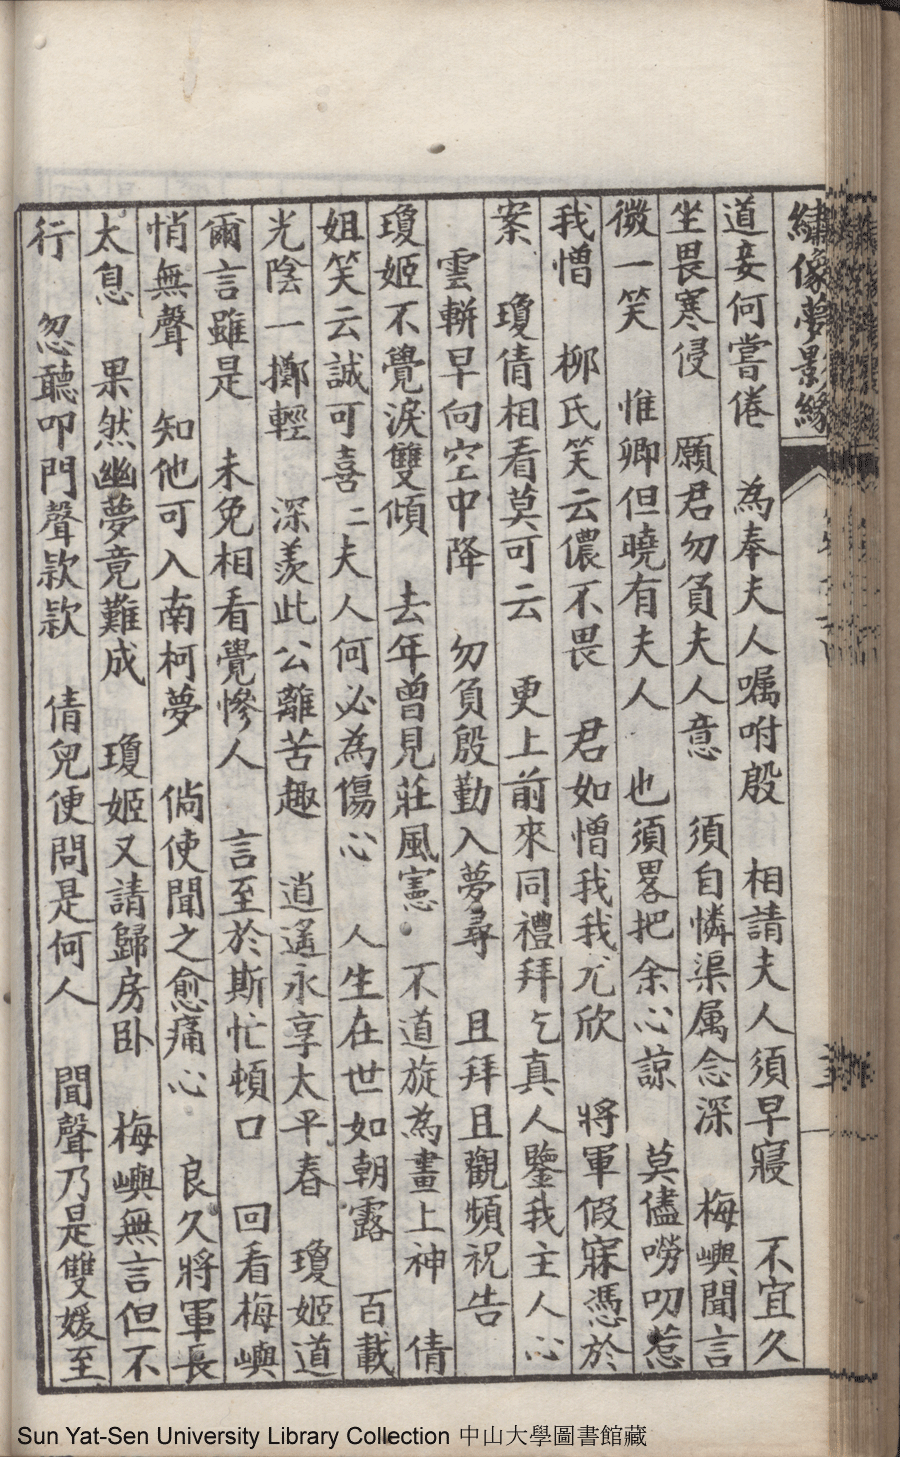 繡像夢影緣
道妾何嘗倦　為奉夫人囑咐殷　相請夫人須早寢　不宜久
坐畏寒侵　願君勿負夫人意　須自憐渠属念深　梅嶼聞言
微一笑　惟卿但曉有夫人　也須畧把余心諒　莫儘嘮叨惹
我憎　柳氏笑云儂不畏　君如憎我我尤欣　將軍假寐憑於
案　瓊倩相看莫可云　更上前來同禮拜　乞真人鑒我主人心
雲輧早向空中降　勿負殷勤入夢尋　且拜且觀頻祝告
瓊姬不覺淚雙傾　去年曾見莊風憲　不道旋為畫上神　倩
姐笑云誠可喜　二夫人何必為傷心　人生在世如朝露　百載
光陰一擲輕　深羨此公離苦趣　逍遙永享太平春　瓊姬道
爾言雖是　未免相看覺慘人　言至於斯忙頓口　回看梅嶼
悄無聲　知他可入南柯夢　倘使聞之愈痛心　良久將軍長
太息　果然幽夢竟難成　瓊姬又請歸房卧　梅嶼無言但不
行　忽聽叩門聲款款　倩兒便問是何人　聞聲乃是雙媛至
Sun Yat-Sen University Library Collection 中山大學圖書館藏